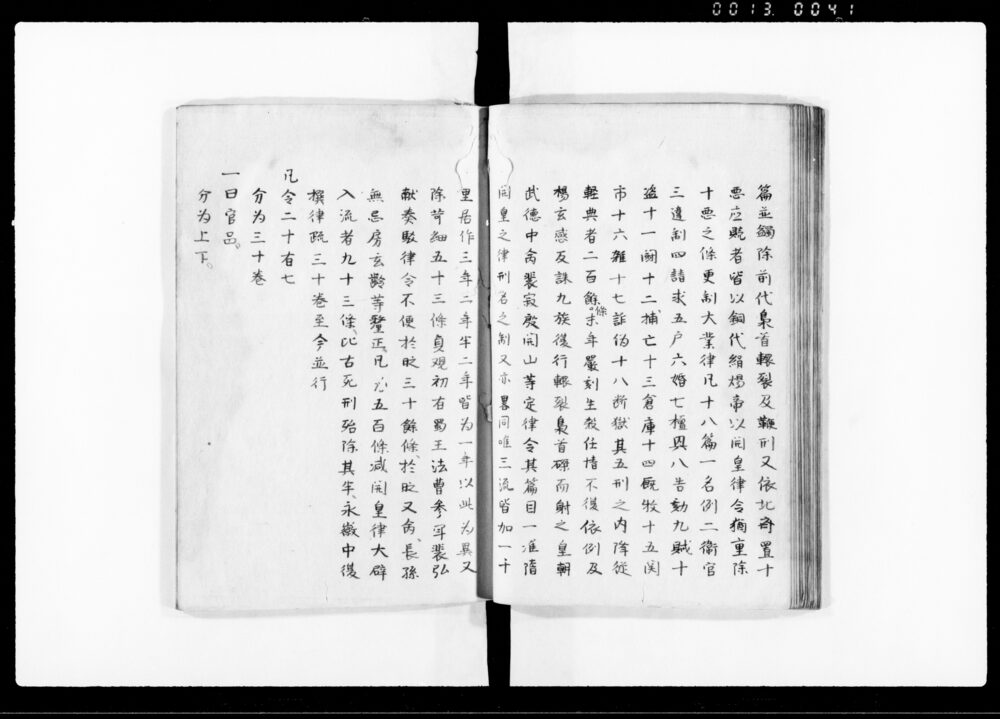 0013.0041
篇並蠲除前代梟首轘裂及鞭刑又依北齊置十
惡应贖者皆以銅代絹煬帝以開皇律令猶重除
十惡之條更制大業律凡十八篇一名例二衛宮
三違制四請求五户六婚七擅興八告劾九賊十
盜十一闘十二捕亡十三倉庫十四厩牧十五関
市十六雜十七詐偽十八断獄其五刑之内降従
軽典者二百餘條末年嚴刻生殺任情不復依例及
楊玄感反誅九族復行轘裂梟首磔而射之皇朝
武德中命裴寂殷開山等定律令其篇目一准隋
開皇之律刑名之制又亦畧同唯三流皆加一千
里居作三年二年半二年皆為一年以此為異又
除苛細五十三條貞觀初有蜀王法曹参軍裴弘
献奏駁律令不便於時三十餘條於時又命長孫
無忌房玄齡等釐正凡為五百條减開皇律大辟
入流者九十三條比古死刑殆除其半永徽中復
撰律疏三十卷至今並行
凡令二十有七
分为三十卷
一曰官品。
分为上下。